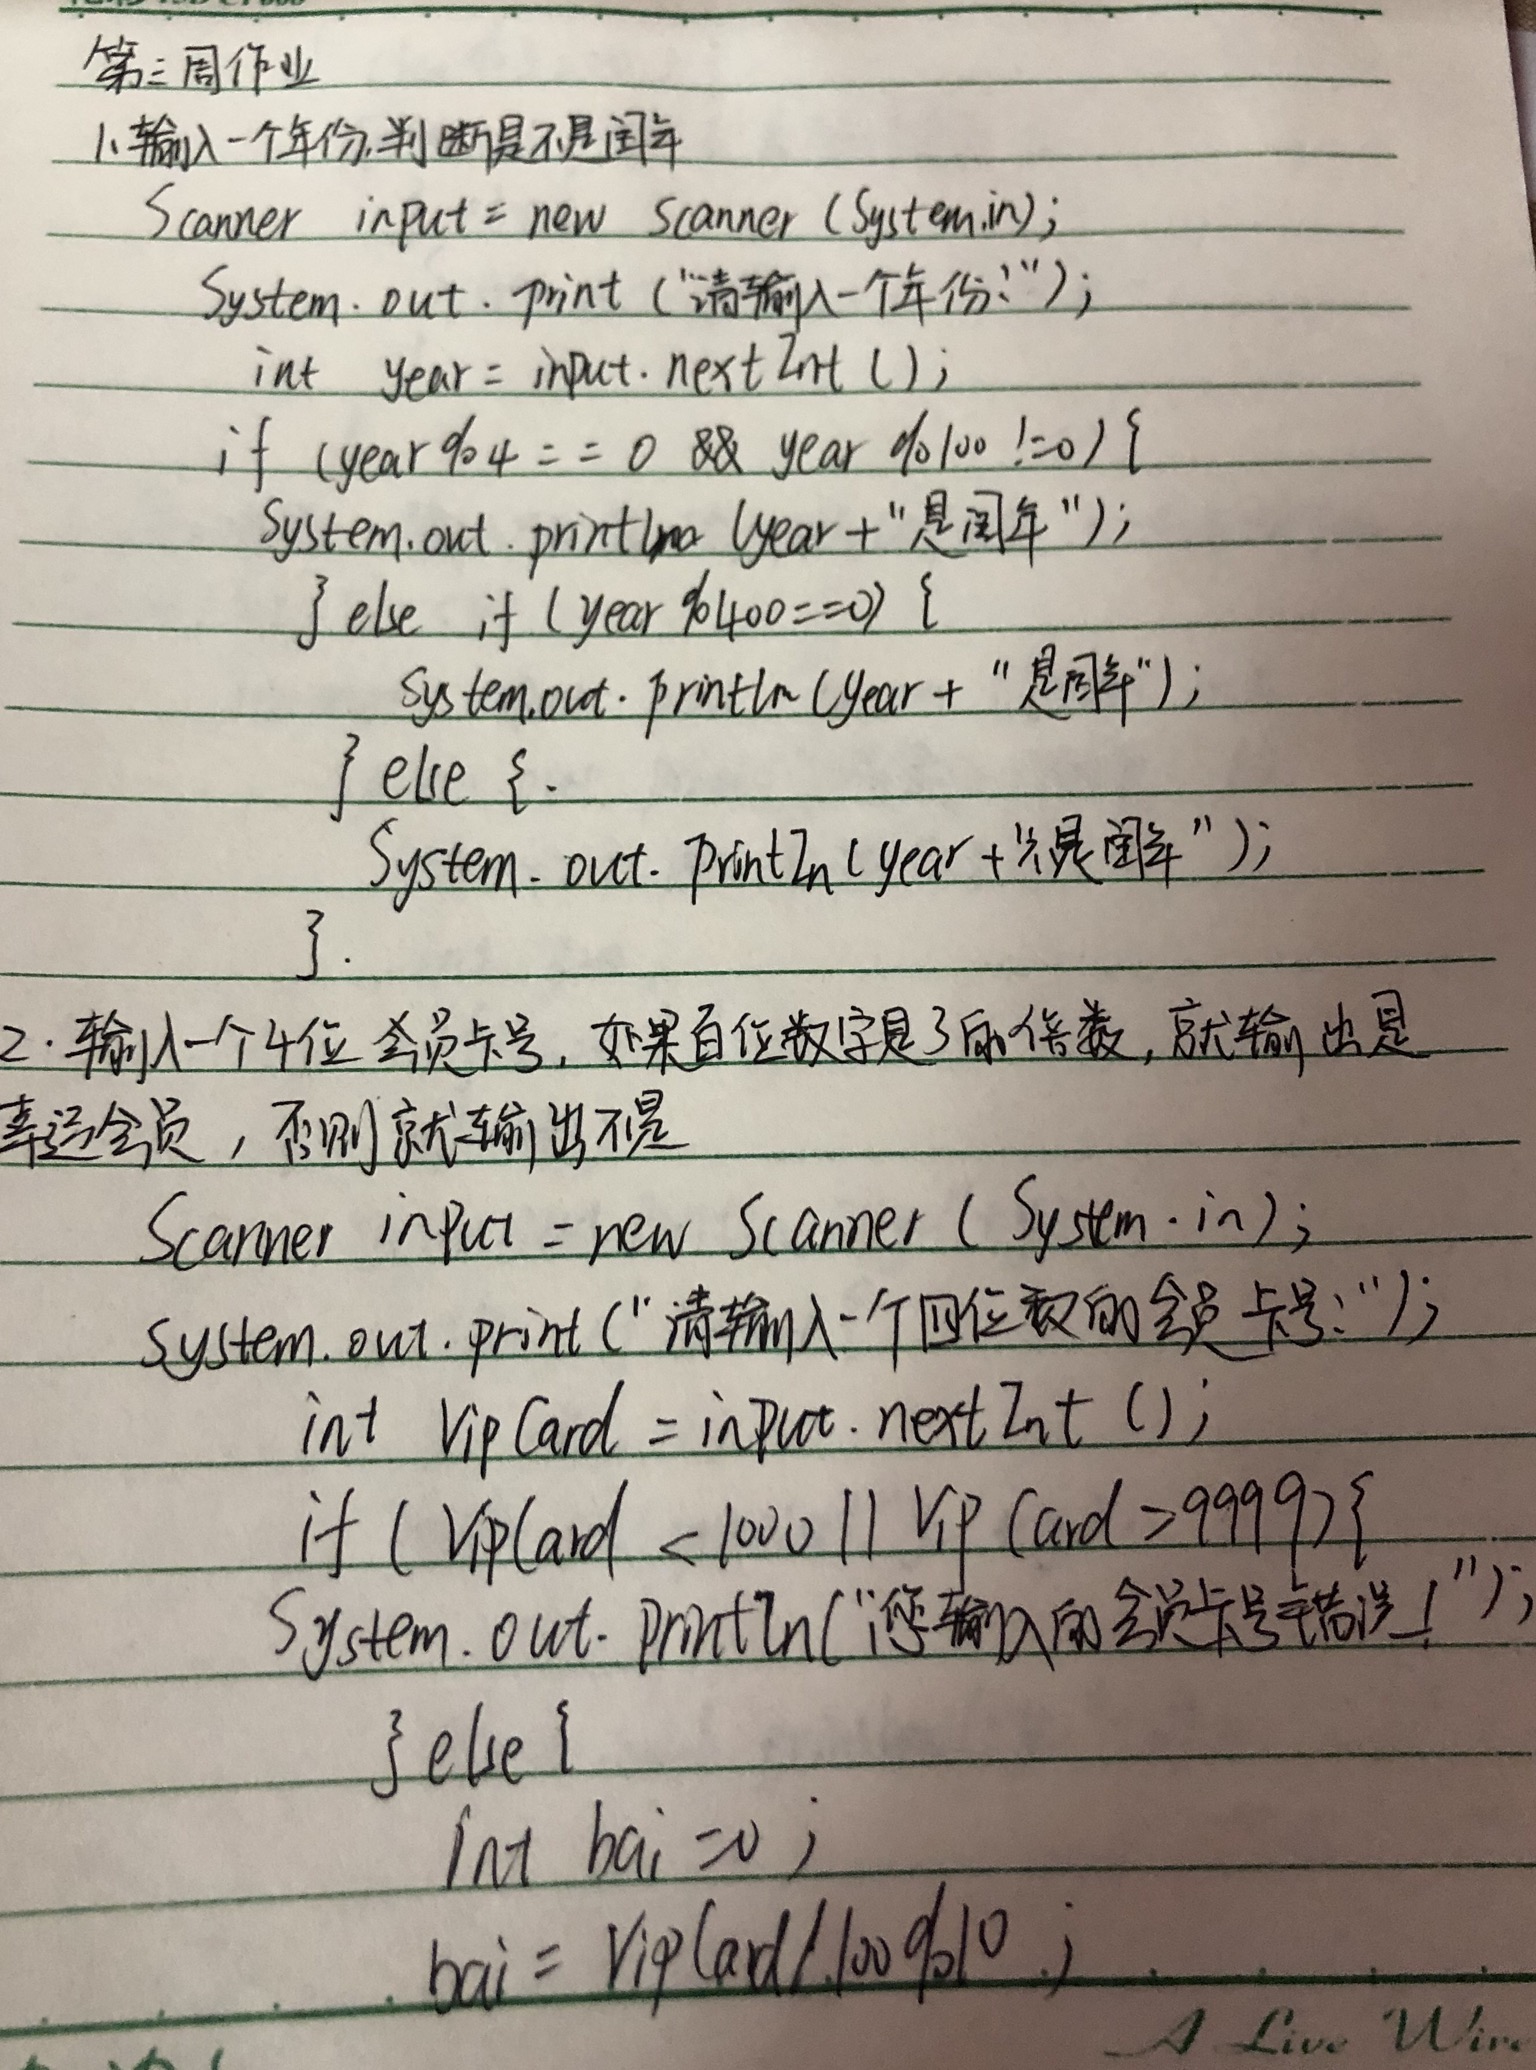 第三周作业
1、输入一个年份,判断是不是闰年
Scanner input = new Scanner (System.in);
System. out. print ("请输入一个年份:");
int year = input. nextInt ();
if (year%4 == 0 && year %100 !=0) {
System.out. println (year+"是闰年");
} else if (year %400==0) {
System.out. println (year + "是闰年");
} else {
System. out. println (year +"不是闰年");
}
2. 输入一个4位会员卡号,如果百位数字是3的倍数,就输出是
幸运会员,否则就输出不是
Scanner input = new Scanner ( System. in);
System. out. print ("请输入一个四位数的会员卡号:");
int VipCard = input. nextInt ();
if ( VipCard < 1000 || VipCard >9999) {
System. out. println("您输入的会员卡号错误!");
} else {
int bai =0 ;
bai = VipCard / 100%10 ;
A Live Wire